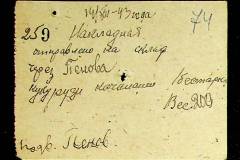 14/XII-43 года
74
259 Накладная
отправлено на склад
чрез Пенова
кукурузи качанами
Вес 209
подр. Пенов